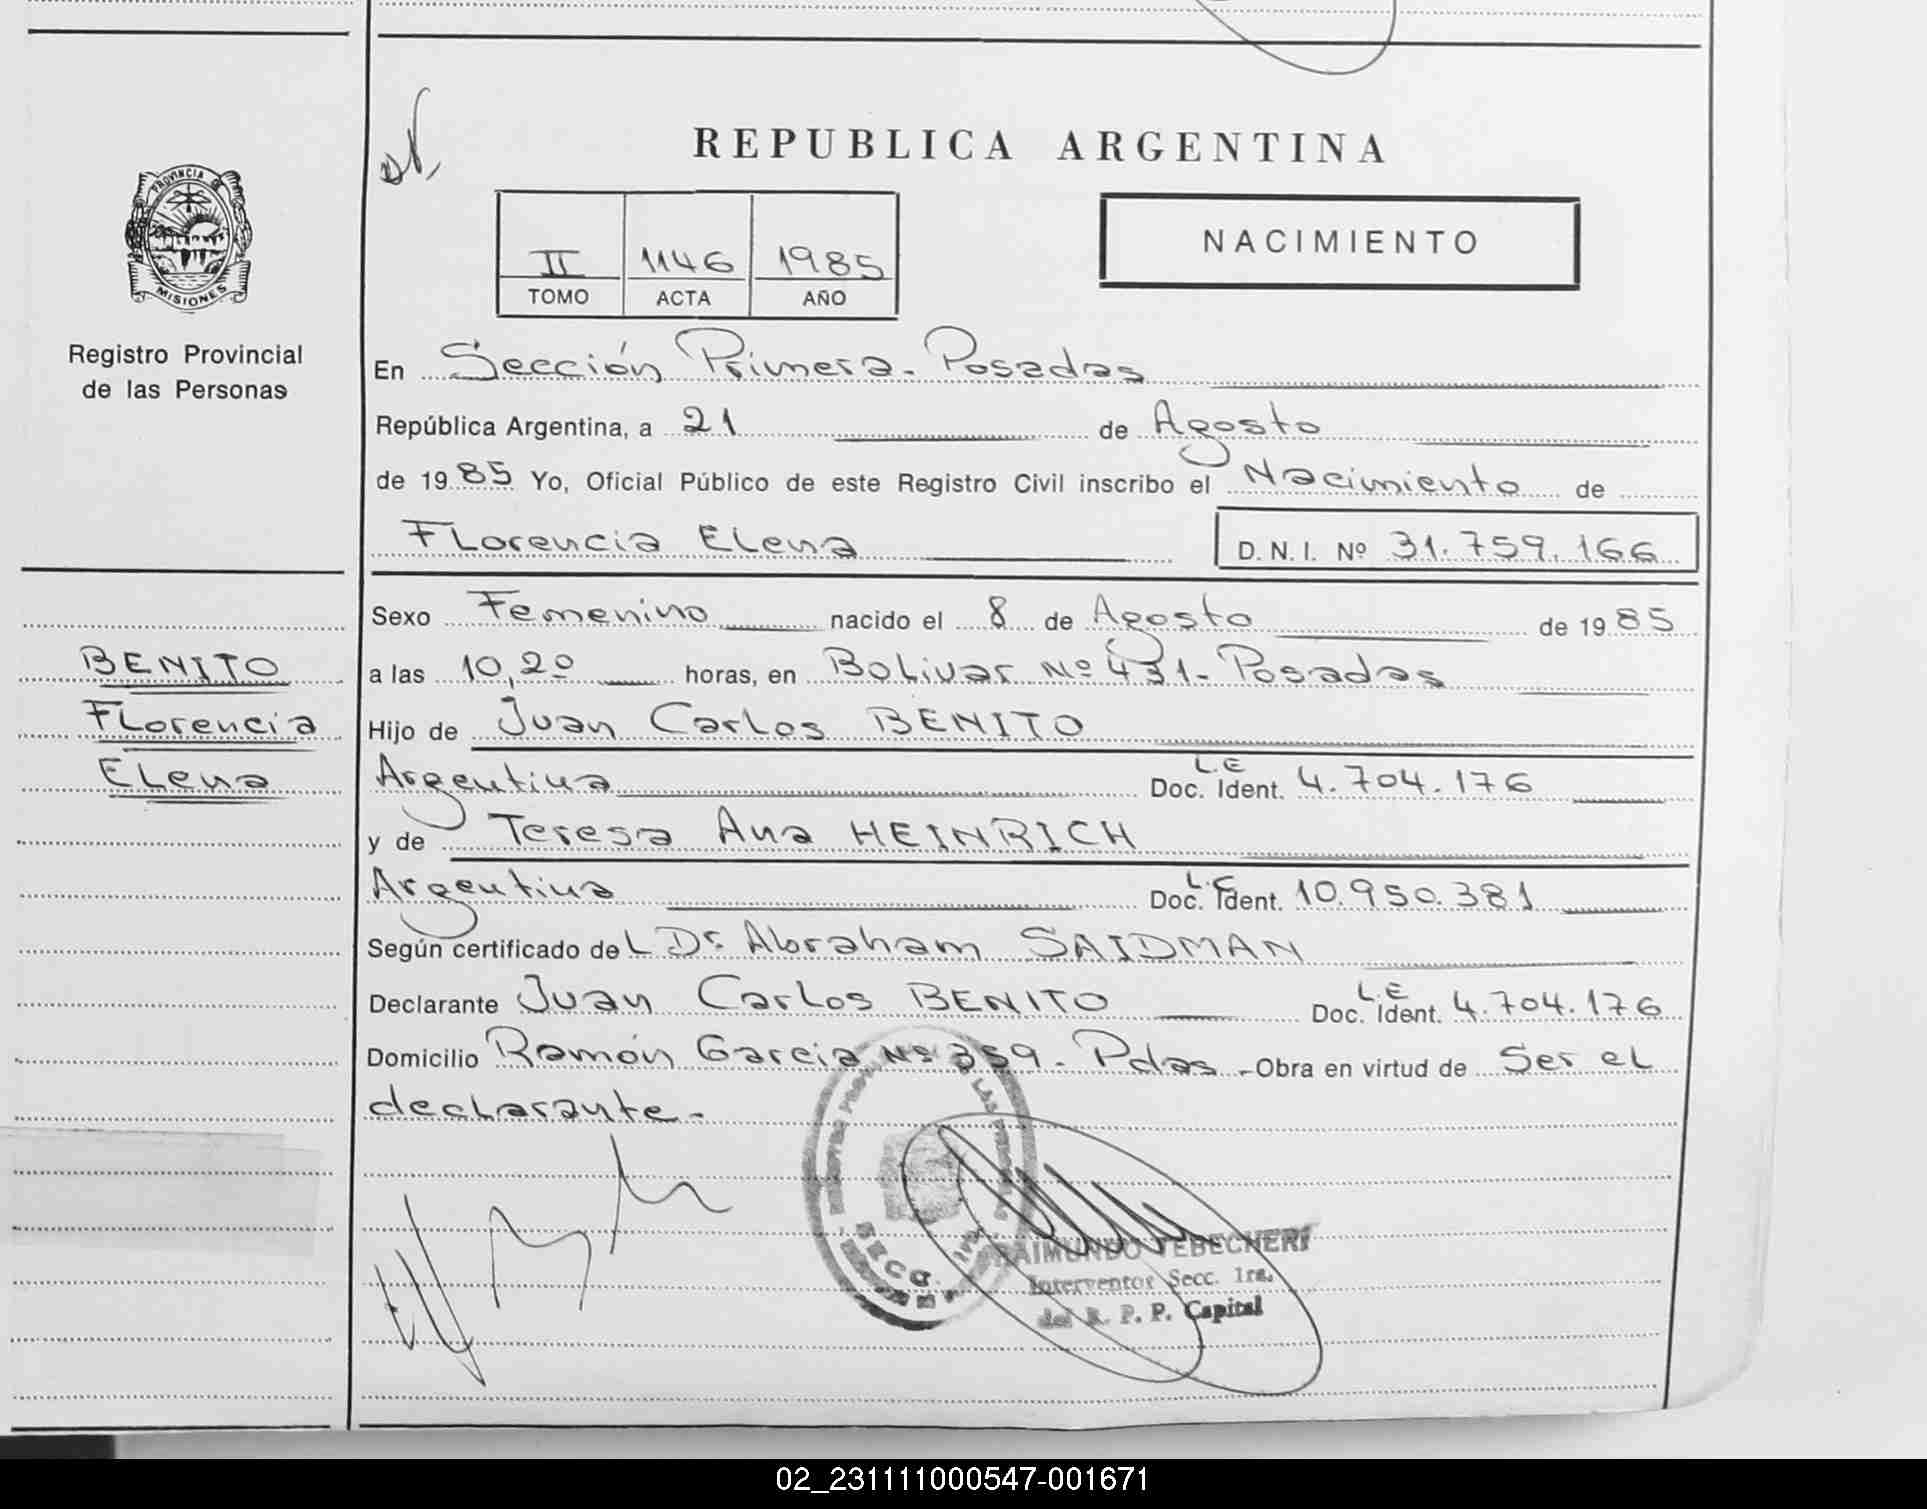 REPUBLICA ARGENTINA
PROVINCIA DE
MISIONES
Registro Provincial
de las Personas
II 1146 1985
TOMO ACTA AÑO
NACIMIENTO
En Sección Primera - Posadas
República Argentina, a 21 de Agosto
de 1985 Yo, Oficial Público de este Registro Civil inscribo el Nacimiento de
Florencia Elena D.N.I. Nº 31.759.166
BENITO
Florencia
Elena
Sexo Femenino nacido el 8 de Agosto de 1985
a las 10,20 horas, en Bolivar Nº 431 - Posadas
Hijo de Juan Carlos BENITO
Argentina Doc. Ident. L.E 4.704.176
y de Teresa Ana HEINRICH
Argentina Doc. Ident. L.C 10.950.381
Según certificado del Dr. Abraham SAIDMAN
Declarante Juan Carlos BENITO Doc. Ident. L.E 4.704.176
Domicilio Ramón Garcia Nº 359 - Pdas - Obra en virtud de Ser el
declarante -
RAIMUNDO TEBECHERI
Interventor Secc. 1ra.
del R. P. P. Capital
02_231111000547-001671